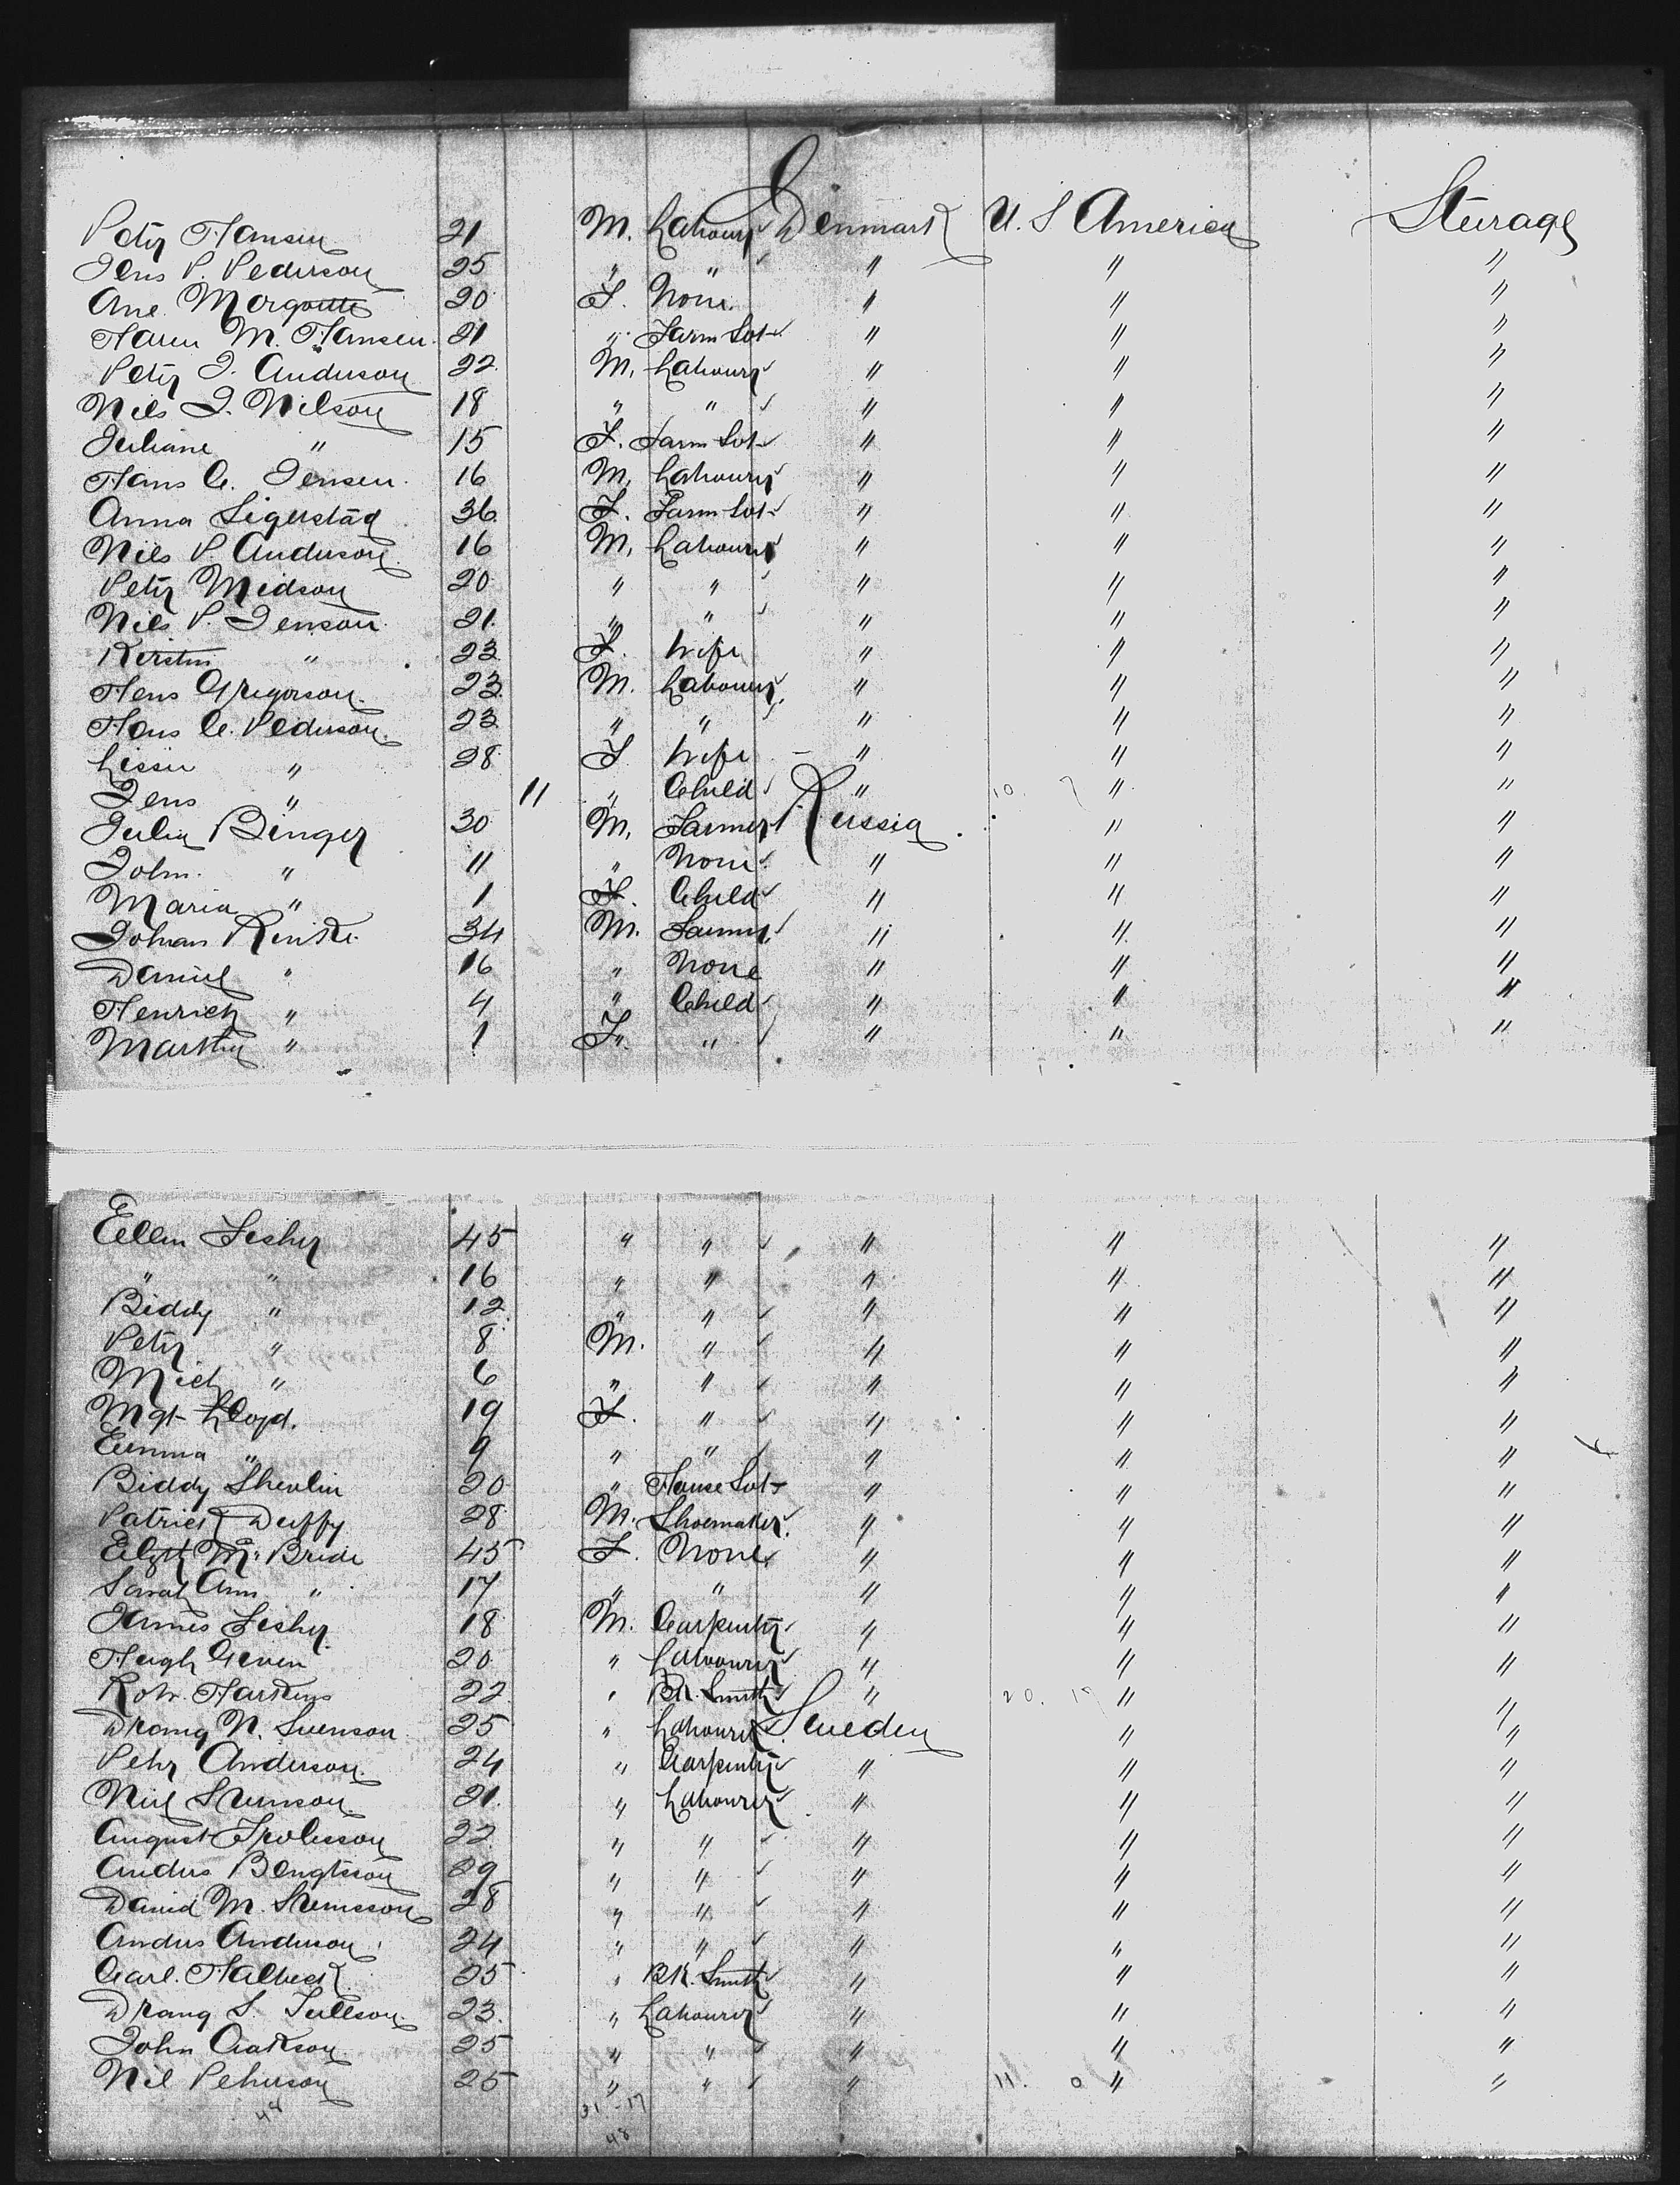 Peter Hansen 21 M. Labourer Denmark U. S America Steerage
Jens P. Pederson 25 " " " " "
Ane Margrette 20 F. None " " "
Haren M. Hansen 21 " Farm Svt " " "
Peter J. Anderson 22 M. Labourer " " "
Niels J. Nilson 18 " " " " "
Juliane " 15 F. Farm Svt " " "
Hans C. Jensen 16 M. Labourer " " "
Anna Sigerstad 36 F. Farm Svt " " "
Niels P. Anderson 16 M. Labourer " " "
Peter Midson 20 " " " " "
Niels P. Jenson 21 " " " " "
Kerstin " 23 F. Wife " " "
Hens Gregorson 23 M. Labourer " " "
Hans C. Pederson 23 " " " " "
Lissie " 28 F Wife " " "
Jens " 11 " Child " 10. 7 " "
Julia Binger 30 M. Farmer Russia " "
John " 11 " None " " "
Maria " 1 F. Child " " "
Johan Rinske 34 M. Farmer " " "
Daniel " 16 " None " " "
Henrich " 4 " Child " " "
Martha " 1 F. " " " "
Ellen Fisher 45 " " " " "
" " 16 " " " " "
Biddy " 12 " " " " "
Peter " 8 M. " " " "
Mich " 6 " " " " "
Mgt Lloyd. 19 F. " " " "
Emma " 9 " " " " "
Biddy Shevlin 20 " House Svt " " "
Patrick Duffy 28 M. Shoemaker " " "
Elizth Mc Bride 45 F. None " " "
Sarah Ann " 17 " " " " "
James Fisher 18 M. Carpenter " " "
Hugh Given 20 " Labourer " " "
Robt. Harkins 22 " Bk. Smith " 20. " "
Drang N. Svenson 25 " Labourer Sweden " "
Pehr Anderson 24 " Carpenter " " "
Nils Svenson 21 " Labourer " " "
August 22 " " " " "
Anders Bengtsson 29 " " " " "
David M. Svensson 28 " " " " "
Anders Anderson 24 " " " " "
Carl. Halbeck 25 " Bk. Smith " " "
Drang S. Tullson 23 " Labourer " " "
John Oakson 25 " " " " "
Nil Pehrson 25 " " " 11. 0 " "
48 31 - 17
48